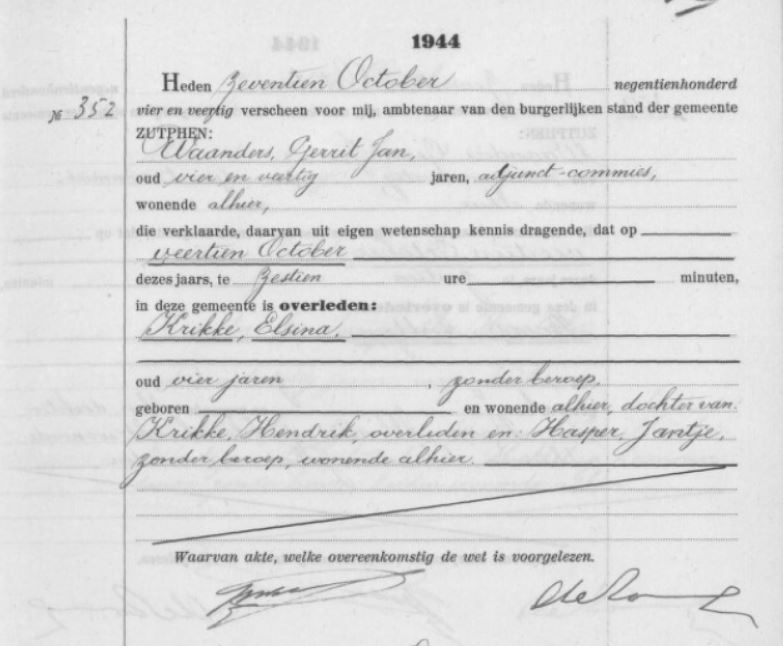 1944
Heden zeventien October negentienhonderd
№ 352 vier en veertig verscheen voor mij, ambtenaar van den burgerlijken stand der gemeente
ZUTPHEN:
Waanders, Gerrit Jan,
oud vier en vartig jaren, adjunct-commies,
wonende alhier,
die verklaarde, daarvan uit eigen wetenschap kennis dragende, dat op
veertien October
dezes jaars, te zestien ure minuten,
in deze gemeente is overleden:
Krikke, Elsina.
oud vier jaren , zonder beroep.
geboren en wonende alhier, dochter van:
Krikke, Hendrik, overleden en: Hasper, Jantje,
zonder beroep, wonende alhier.
Waarvan akte, welke overeenkomstig de wet is voorgelezen.